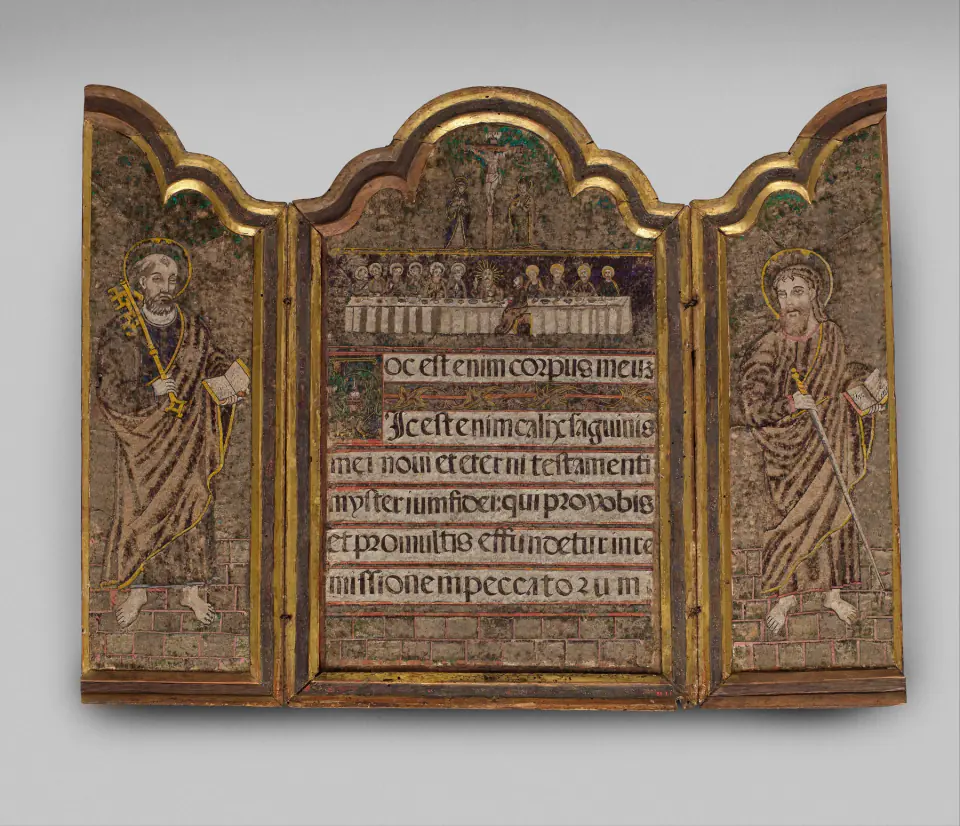 oc est enim corpus meuz
Ic est enim calix saguinis
mei noui et eterni testamenti
mysterium fidei: qui pro vobis
et pro multis effundetur in re
missionem peccatorum